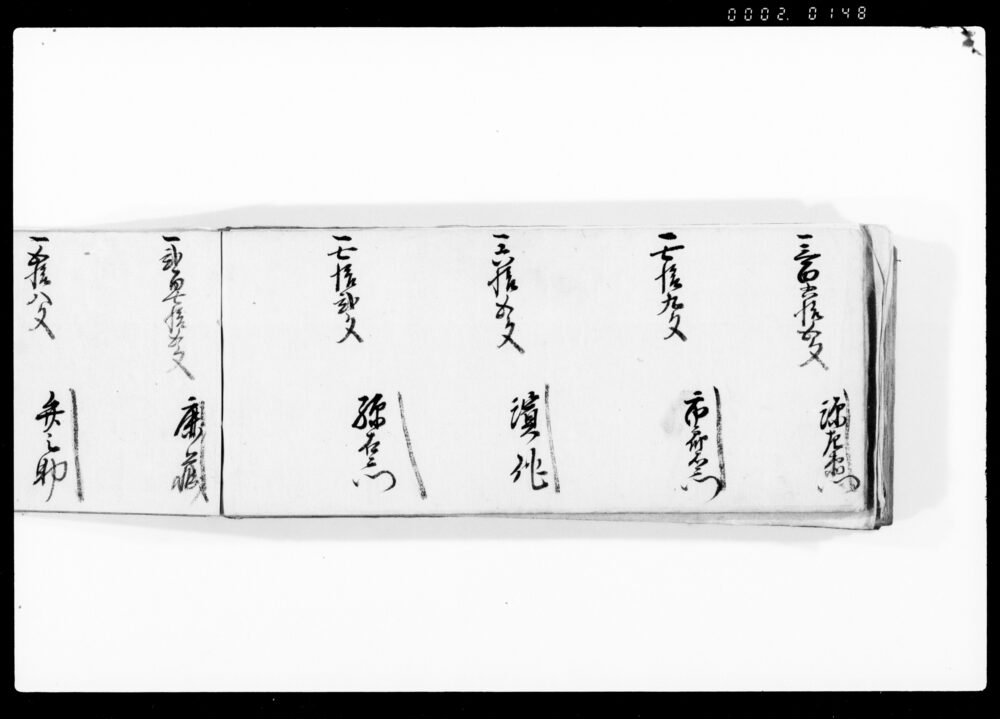 0002.0148
一三百六拾五文
源左衛門
一七拾九文
市郎右衛門
一六拾五文
濱作
一七拾弐文
孫右衛門
一弐百拾五文
康蔵
一五拾八文
弁之助